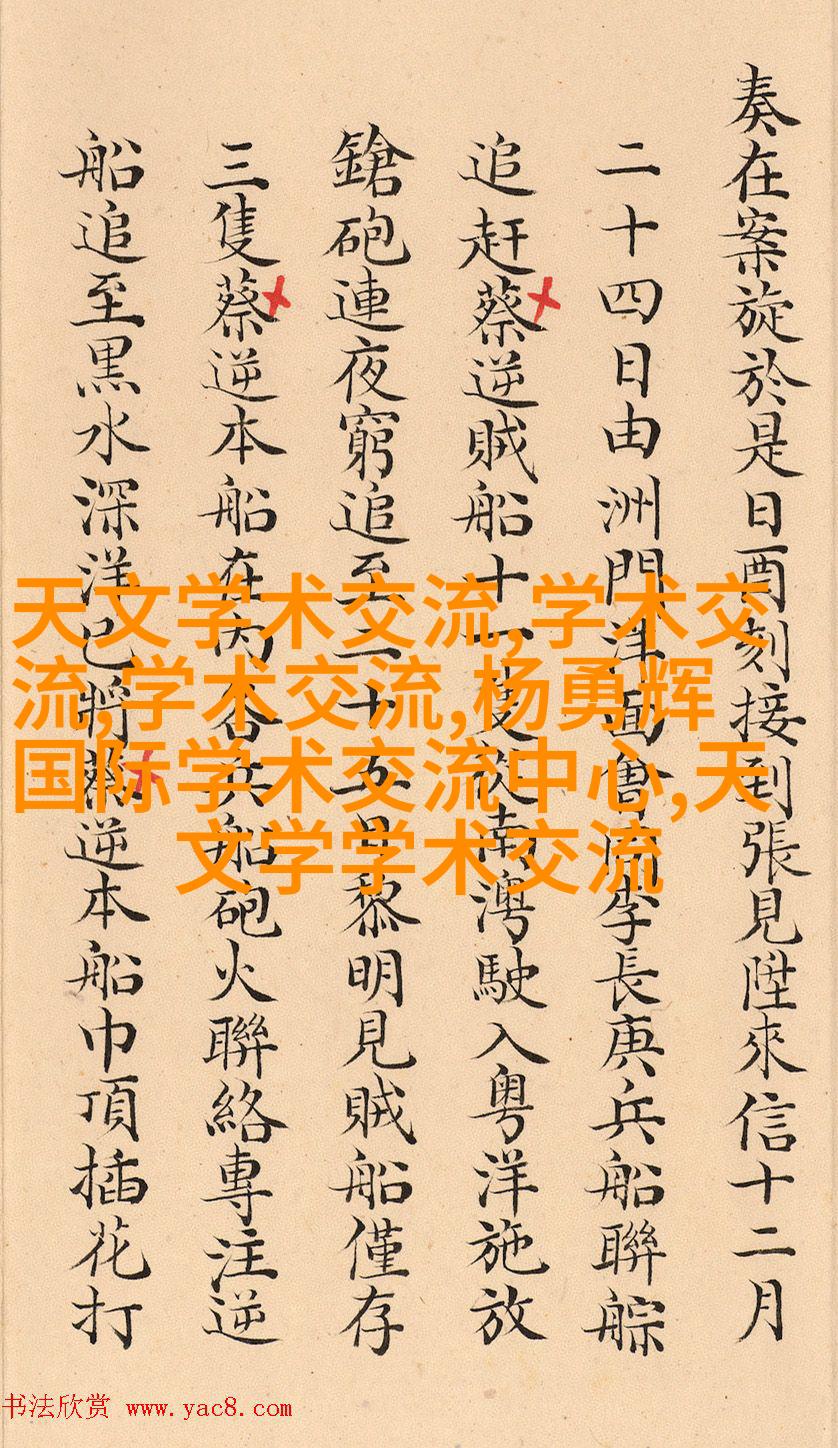 奏在案旋於是日酉刻接到張見陞來信十二月
二十四日由洲門洋面會同李長庚兵船聯䑸
追赶蔡逆賊船十一隻從南澳駛入粤洋施放
鎗砲連夜窮追至二十五日黎明見賊船僅存
三隻蔡逆本船在内各兵船砲火聯絡專注逆
船追至黒水深洋已將蔡逆本船巾頂插花打
天文学术交流,学术交
流,学术交流,杨勇辉
国际学术交流中心,天
文学学术交流
书法欣赏 www.yac8.com